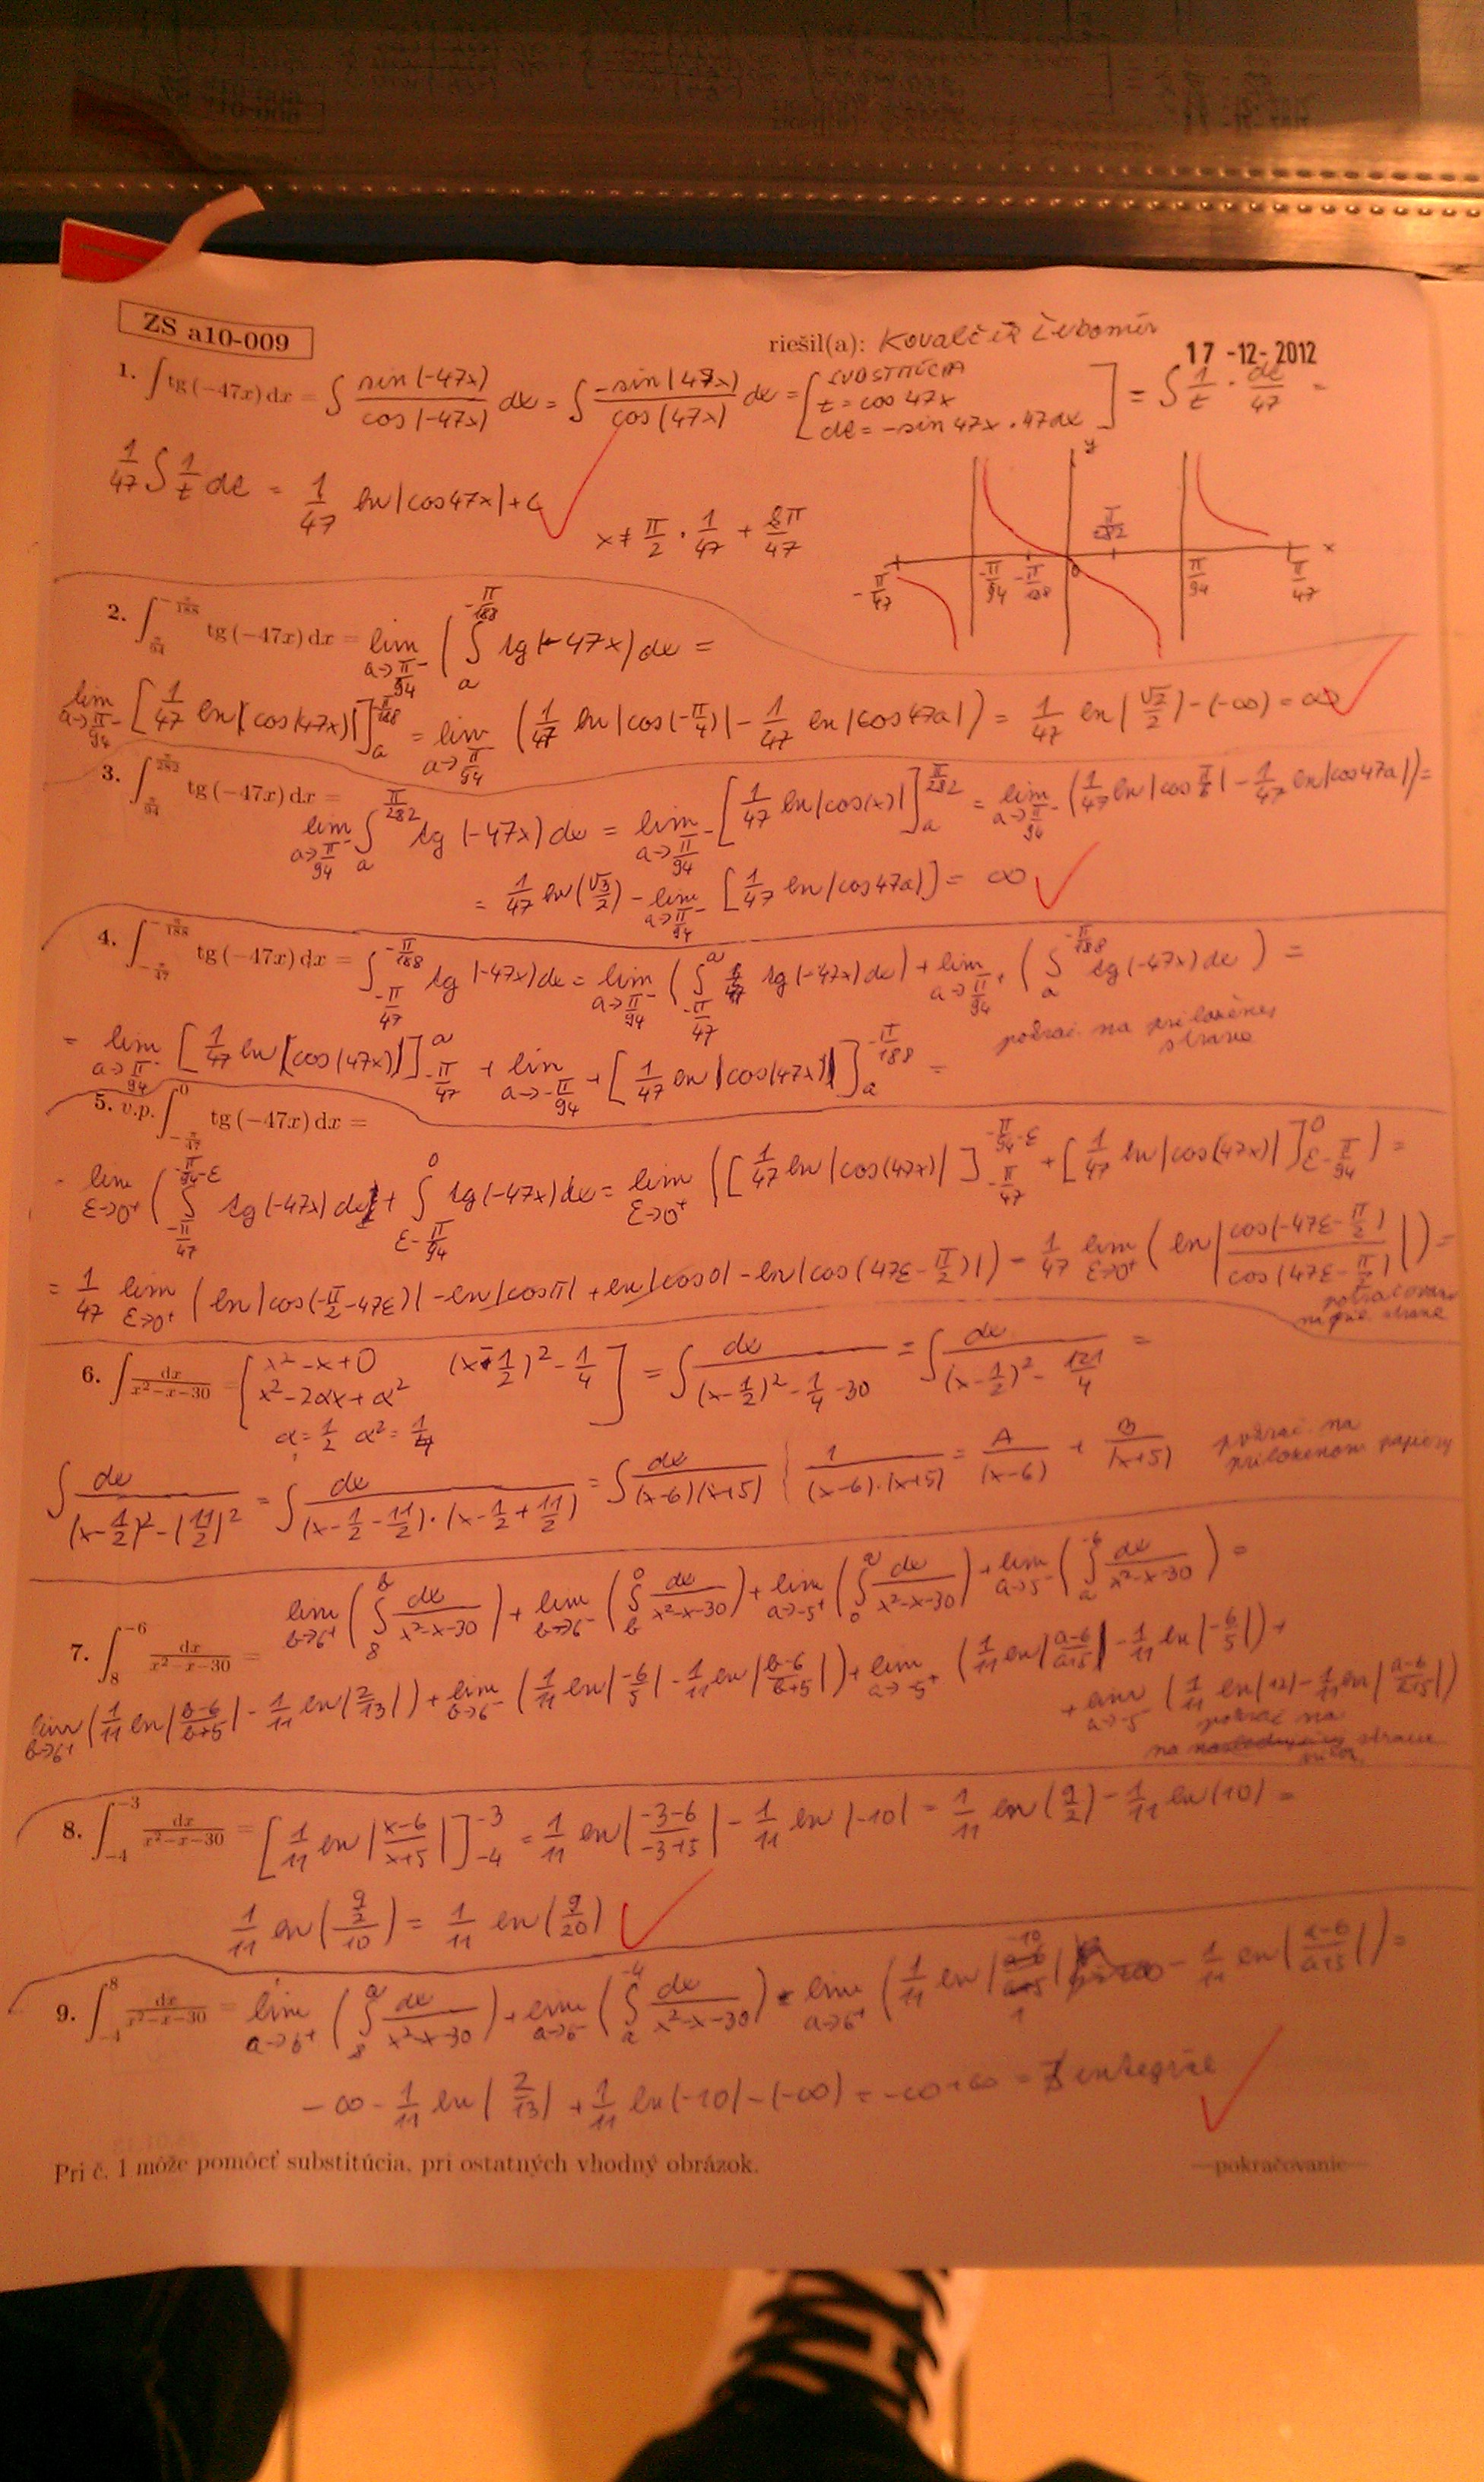 ZS a10-009
riešil(a): Kovalčík Ľubomír
17 -12- 2012
1. ∫ tg(−47x) dx = ∫ sin(-47x)/cos(-47x) dx = ∫ -sin(47x)/cos(47x) dx = [SUBSTITÚCIA t = cos 47x dt = -sin 47x · 47dx] = ∫ 1/t · dt/47 =
1/47 ∫ 1/t dt = 1/47 ln|cos47x| + c
x ≠ π/2 · 1/47 + kπ/47
y
-π/47 -π/94 -π/188 0 π/282 π/94 π/47 x
2. ∫_{π/94}^{-π/188} tg(−47x) dx = lim a→π/94- (∫_a^{-π/188} tg(-47x) dx =
lim a→π/94- [1/47 ln|cos(47x)|]_a^{-π/188} = lim a→π/94- (1/47 ln|cos(-π/4)| - 1/47 ln|cos47a|) = 1/47 ln(√2/2) - (-∞) = ∞
3. ∫_{π/94}^{π/282} tg(−47x) dx =
lim a→π/94- ∫_a^{π/282} tg(-47x) dx = lim a→π/94- [1/47 ln|cos(x)|]_a^{π/282} = lim a→π/94- (1/47 ln|cos π/6| - 1/47 ln|cos47a|) =
= 1/47 ln(√3/2) - lim a→π/94- [1/47 ln|cos47a|] = ∞
4. ∫_{-π/47}^{-π/188} tg(−47x) dx = ∫_{-π/47}^{-π/188} tg(-47x) dx = lim a→π/94- (∫_{-π/47}^a tg(-47x) dx) + lim a→π/94+ (∫_a^{-π/188} tg(-47x) dx) =
= lim a→π/94- [1/47 ln|cos(47x)|]_{-π/47}^a + lim a→-π/94+ [1/47 ln|cos(47x)|]_a^{-π/188} =
pokrač. na priloženej
strane
5. v.p. ∫_{-π/47}^0 tg(−47x) dx =
lim ε→0+ (∫_{-π/47}^{-π/94-ε} tg(-47x) dx + ∫_{ε-π/94}^0 tg(-47x) dx = lim ε→0+ ([1/47 ln|cos(47x)|]_{-π/47}^{-π/94-ε} + [1/47 ln|cos(47x)|]_{ε-π/94}^0) =
= 1/47 lim ε→0+ (ln|cos(-π/2-47ε)| - ln|cosπ| + ln|cos0| - ln|cos(47ε-π/2)|) = 1/47 lim ε→0+ (ln|cos(-47ε-π/2)/cos(47ε-π/2)|) =
strane
6. ∫ dx/(x²−x−30) = [x²-x+0 (x-1/2)²-1/4 x²-2αx+α² α=1/2 α²=1/4] = ∫ dx/((x-1/2)²-1/4-30) = ∫ dx/((x-1/2)²-121/4) =
∫ dx/((x-1/2)²-(11/2)²) = ∫ dx/((x-1/2-11/2)·(x-1/2+11/2)) = ∫ dx/((x-6)(x+5)) { 1/((x-6)·(x+5)) = A/(x-6) + B/(x+5)
pokrač. na
priloženom papiery
7. ∫_8^{-6} dx/(x²−x−30) = lim b→6+ (∫_8^b dx/(x²-x-30)) + lim b→6- (∫_b^0 dx/(x²-x-30)) + lim a→-5+ (∫_0^a dx/(x²-x-30)) + lim a→-5- (∫_a^{-6} dx/(x²-x-30)) =
lim b→6+ (1/11 ln|(b-6)/(b+5)| - 1/11 ln|2/13|) + lim b→6- (1/11 ln|-6/5| - 1/11 ln|(b-6)/(b+5)|) + lim a→-5+ (1/11 ln|(a-6)/(a+5)| - 1/11 ln|-6/5|) +
+ lim a→-5- (1/11 ln|12| - 1/11 ln|(a-6)/(a+5)|)
pokrač na
strane
8. ∫_{-4}^{-3} dx/(x²−x−30) = [1/11 ln|(x-6)/(x+5)|]_{-4}^{-3} = 1/11 ln|(-3-6)/(-3+5)| - 1/11 ln|-10| = 1/11 ln(9/2) - 1/11 ln(10) =
1/11 ln((9/2)/10) = 1/11 ln(9/20)
9. ∫_{-4}^8 dx/(x²−x−30) = lim a→6+ (∫_8^a dx/(x²-x-30)) + lim a→6- (∫_a^{-4} dx/(x²-x-30)) = lim a→6+ (1/11 ln|-10/1| - 1/11 ln|(a-6)/(a+5)|) =
-∞ - 1/11 ln|2/13| + 1/11 ln|-10| - (-∞) = -∞+∞ = ∄ integrál
Pri č. 1 môže pomôcť substitúcia, pri ostatných vhodný obrázok.
—pokračovanie—